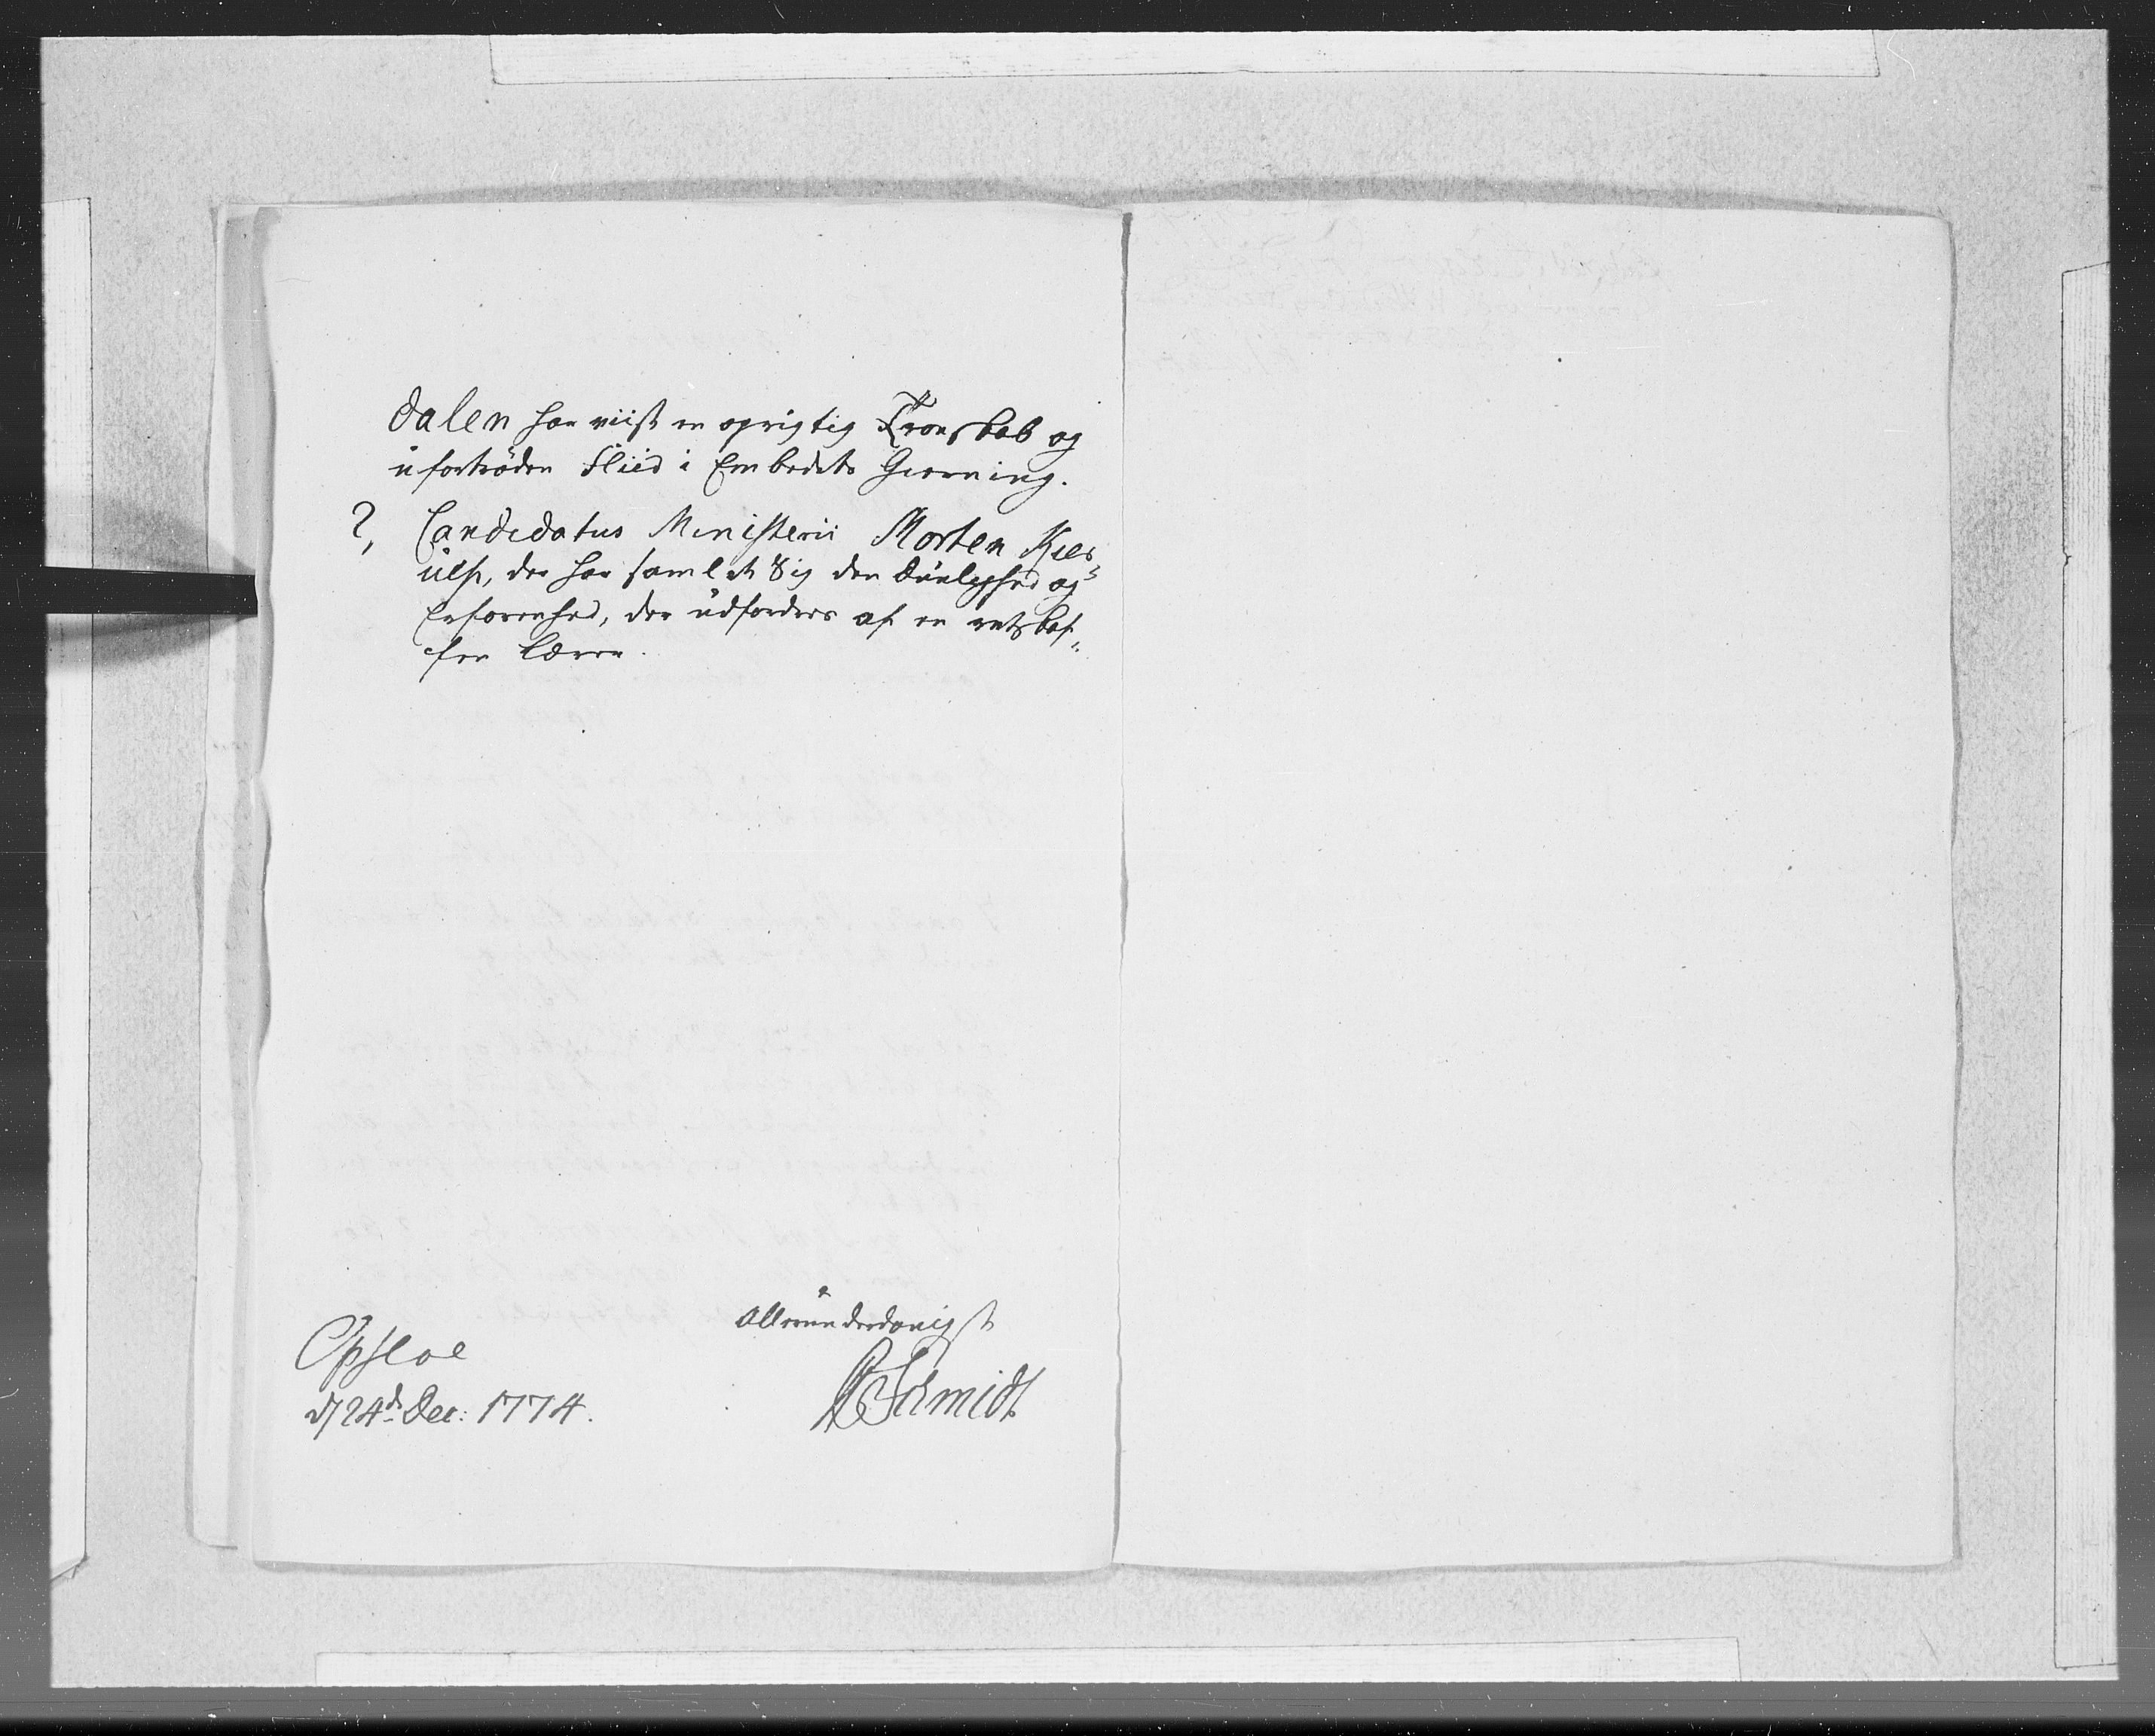 dalen har viist en oprigtig Troeskab og
ufortröden Fliid i Embedets Gierning.
2, Candidatus Ministerii Morten Kier„
ulf, der har samlet Sig den Duelighed og
Erfarenhed, der udfordres af en retskaf„
fen Lærer.
Allerunderdanigst
Opsloe
FSchmidt
d 24de Dec: 1774.